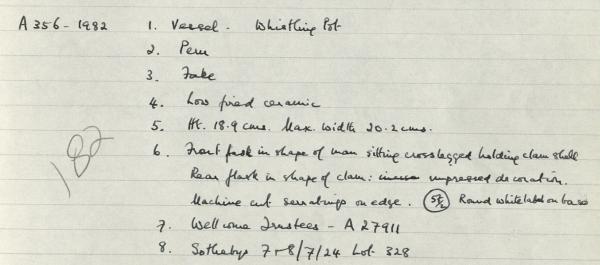 A 356-1982 1. Vessel. Whistling Pot
2. Peru
3. Fake
4. Low fired ceramic
5. Ht. 18.9 cms. Max. width 20.2 cms.
6. Front flask in shape of man sitting crosslegged holding clam shell
Rear flask in shape of clam: impressed decoration.
Machine cut serratings on edge. Round white label on base
7. Wellcome Trustees - A 27911
8. Sothebys 7-8/7/24 Lot 328
182